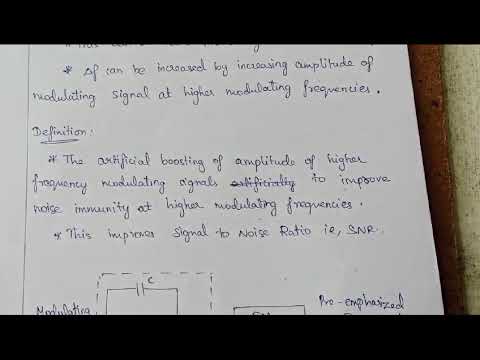 * Δf can be increased by increasing amplitude of
modulating signal at higher modulating frequencies.
Definition:
* The artificial boosting of amplitude of higher
frequency modulating signals artificially to improve
noise immunity at higher modulating frequencies.
* This improves Signal to Noise Ratio ie, SNR.
C
Modulating
Pre-emphasized